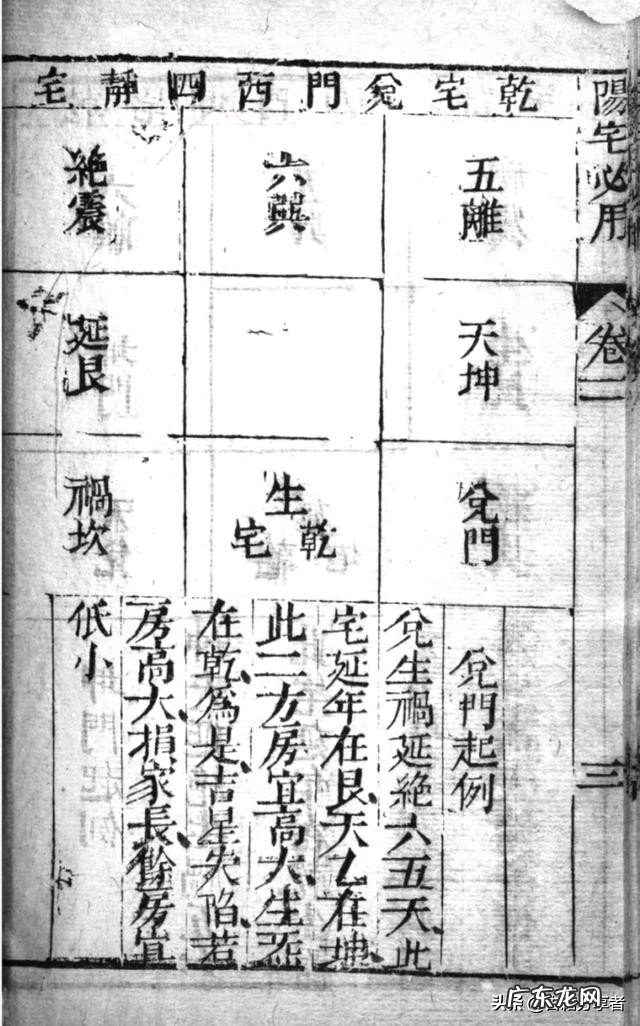 陽宅必用
卷二
三
乾宅兌門西四靜宅
五離
六巽
絶震
天坤
延艮
兌門
生
乾宅
禍坎
兌門起例
兌生禍延絶六五天、此
宅延年在艮、天乙在坤、
此二方房宜高大、生炁
在乾、爲是、吉星失陷、若
房高大、損家長、餘房宜
低小
广东龙网